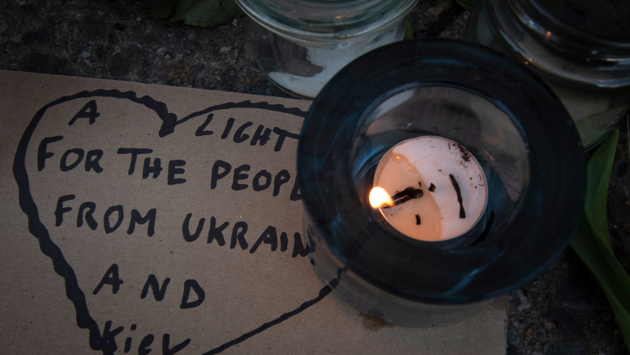 A
LIGHT
FOR THE PEOPL
FROM UKRAIN
AND
Kiev